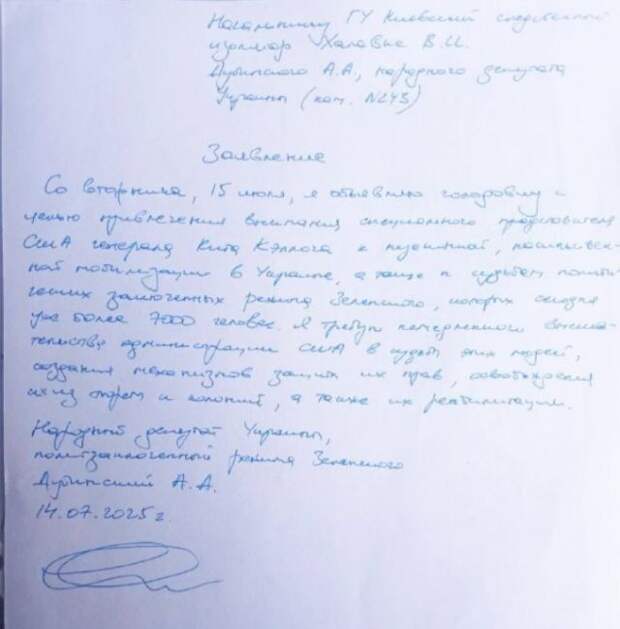 Начальнику ГУ Киевский следственный
изолятор В.И.
Дубинского А.А., народного депутата
Украины (кам. №243)
Заявление
Со вторника, 15 июля, я объявляю голодовку с
целью привлечения внимания специального представителя
США генерала Кита Кэллога к насильствен-
ной мобилизации в Украине, а также к судьбам полити-
ческих заключенных режима Зеленского, которых сегодня
уже более 7000 человек. Я требую немедленного вмеша-
тельства администрации США в судьбы этих людей,
создания механизмов защиты их прав, освобождения
их из тюрем и колоний, а также их реабилитации.
Народный депутат Украины,
политзаключенный режима Зеленского
Дубинский А.А.
14.07.2025г.